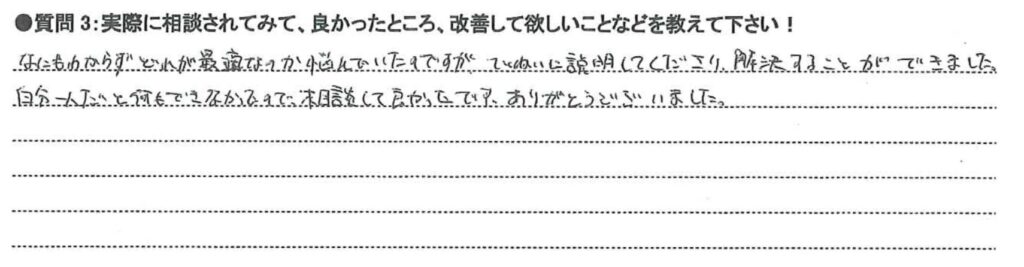 ●質問3:実際に相談されてみて、良かったところ、改善して欲しいことなどを教えて下さい!
なにもわからずどれが最適なのか悩んでいたのですが、ていねいに説明してくださり、解決することができました。
自分一人だと何もできなかったので、相談して良かったです。ありがとうございました。